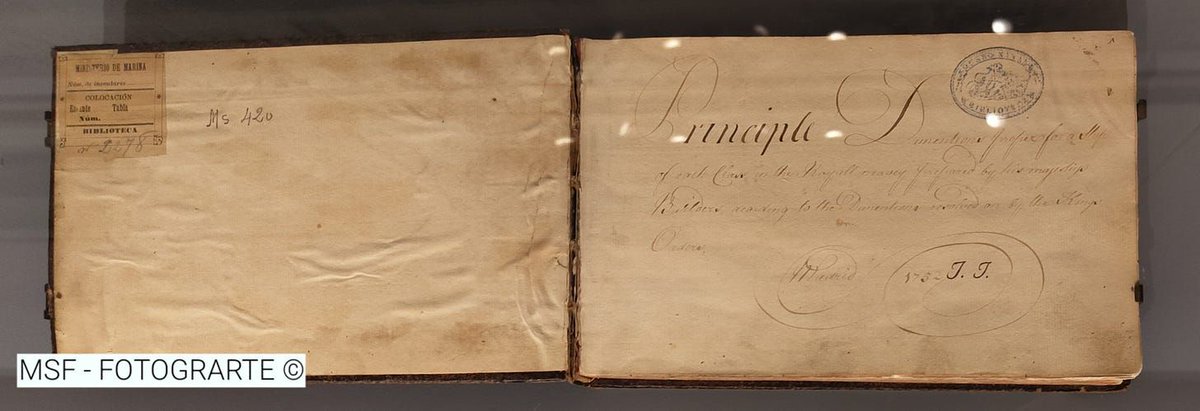 MINISTERIO DE MARINA
Núm. de inventario
COLOCACIÓN
Estante Tabla
Núm.
BIBLIOTECA
2278
Ms 420
BIBLIOTECA
Principle Dimentions for a Ship
of each Class in the Royall by his majesties
Builders acording to the Dimentions by the Kings
Orders
Madrid 1752 J. J.
MSF - FOTOGRARTE ©